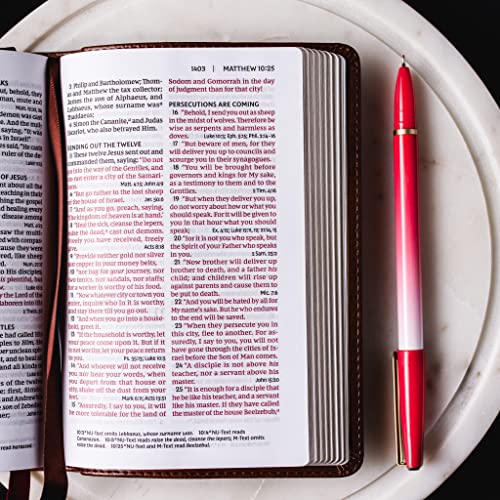 AKS
out, behold, they
man, mute and
was cast out, the
es marveled, say-
this in Israel!"
said, "He casts
of the demons."
OF JESUS
about all the cities
teaching in their
ing the gospel of
ling every sickness
among the people.
saw the multitudes,
with compassion
they were weary
like sheep having
to His disciples,
is plentiful, but
y the Lord of the
laborers into His
TLES
had called His
m, He gave them
spirits, to cast
all kinds of sick-
of disease.
of the twelve
se: first, Simon,
nd Andrew his
n of Zebedee,
1403 | MATTHEW 10:25
3 Philip and Bartholomew; Thom-
as and Matthew the tax collector;
James the son of Alphaeus, and
Lebbaeus, whose surname was*
Thaddaeus;
4 Simon the Cananite,* and Judas
Iscariot, who also betrayed Him.
SENDING OUT THE TWELVE
5 These twelve Jesus sent out and
commanded them, saying: "Do not
go into the way of the Gentiles, and
do not enter a city of the Samari-
tans. Matt. 4:15; John 4:9
6 "But go rather to the lost sheep
of the house of Israel. Jer. 50:6
7 "And as you go, preach, saying,
'The kingdom of heaven is at hand.'
8 "Heal the sick, cleanse the lepers,
raise the dead,* cast out demons.
Freely you have received, freely
give. Acts 8:18
9 "Provide neither gold nor silver
nor copper in your money belts,
10 "nor bag for your journey, nor
two tunics, nor sandals, nor staffs;
for a worker is worthy of his food.
11 "Now whatever city or town you
enter, inquire who in it is worthy,
and stay there till you go out.
12 "And when you go into a house-
hold, greet it.
13 "If the household is worthy, let
your peace come upon it. But if it
is not worthy, let your peace return
to you. Ps. 35:13; Luke 10:5
14 "And whoever will not receive
you nor hear your words, when
you depart from that house or
city, shake off the dust from your
feet. Mark 6:11; Acts 13:51
15 "Assuredly, I say to you, it will
be more tolerable for the land of
Sodom and Gomorrah in the day
of judgment than for that city!
PERSECUTIONS ARE COMING
16 "Behold, I send you out as sheep
in the midst of wolves. Therefore be
wise as serpents and harmless as
doves. Luke 10:3; Eph. 5:15
17 "But beware of men, for they
will deliver you up to councils and
scourge you in their synagogues.
18 "You will be brought before
governors and kings for My sake,
as a testimony to them and to the
Gentiles. 2 Tim. 4:16
19 "But when they deliver you up,
do not worry about how or what you
should speak. For it will be given to
you in that hour what you should
speak; Ex. 4:12; Luke 12:11, 12
20 "for it is not you who speak, but
the Spirit of your Father who speaks
in you. 2 Sam. 23:2
21 "Now brother will deliver up
brother to death, and a father his
child; and children will rise up
against parents and cause them to
be put to death. Mic. 7:6
22 "And you will be hated by all for
My name's sake. But he who endures
to the end will be saved.
23 "When they persecute you in
this city, flee to another. For as-
suredly, I say to you, you will not
have gone through the cities of
Israel before the Son of Man comes.
24 "A disciple is not above his
teacher, nor a servant above his
master. John 15:20
25 "It is enough for a disciple that
he be like his teacher, and a servant
like his master. If they have called
the master of the house Beelzebub,*
10:3 *NU-Text omits Lebbaeus, whose surname was. 10:4 *NU-Text reads
Cananaean. 10:8 *NU-Text reads raise the dead, cleanse the lepers; M-Text omits
raise the dead. 10:25 *NU-Text and M-Text read Beelzebul.